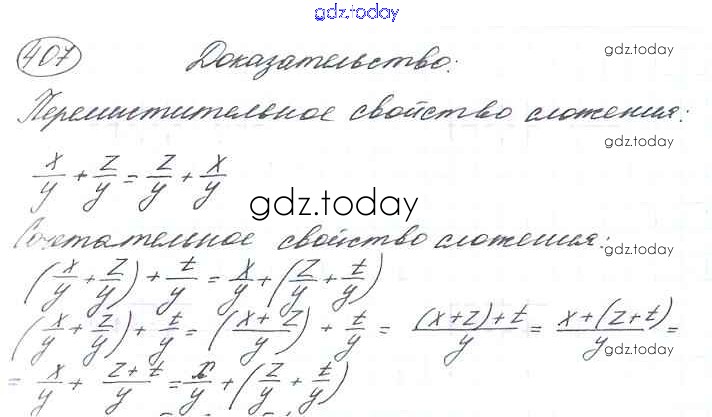 gdz.today
407 Доказательство: gdz.today
Переместительное свойство сложения:
gdz.today
x/y + z/y = z/y + x/y
gdz.today
Сочетательное свойство сложения:
gdz.today
(x/y + z/y) + t/y = x/y + (z/y + t/y)
(x/y + z/y) + t/y = ((x+z)/y) + t/y = ((x+z)+t)/y = (x+(z+t))/y =
gdz.today
= x/y + (z+t)/y = x/y + (z/y + t/y)